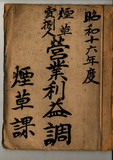 昭和十六年度
煙草
賣捌人 営業利益調
煙草課